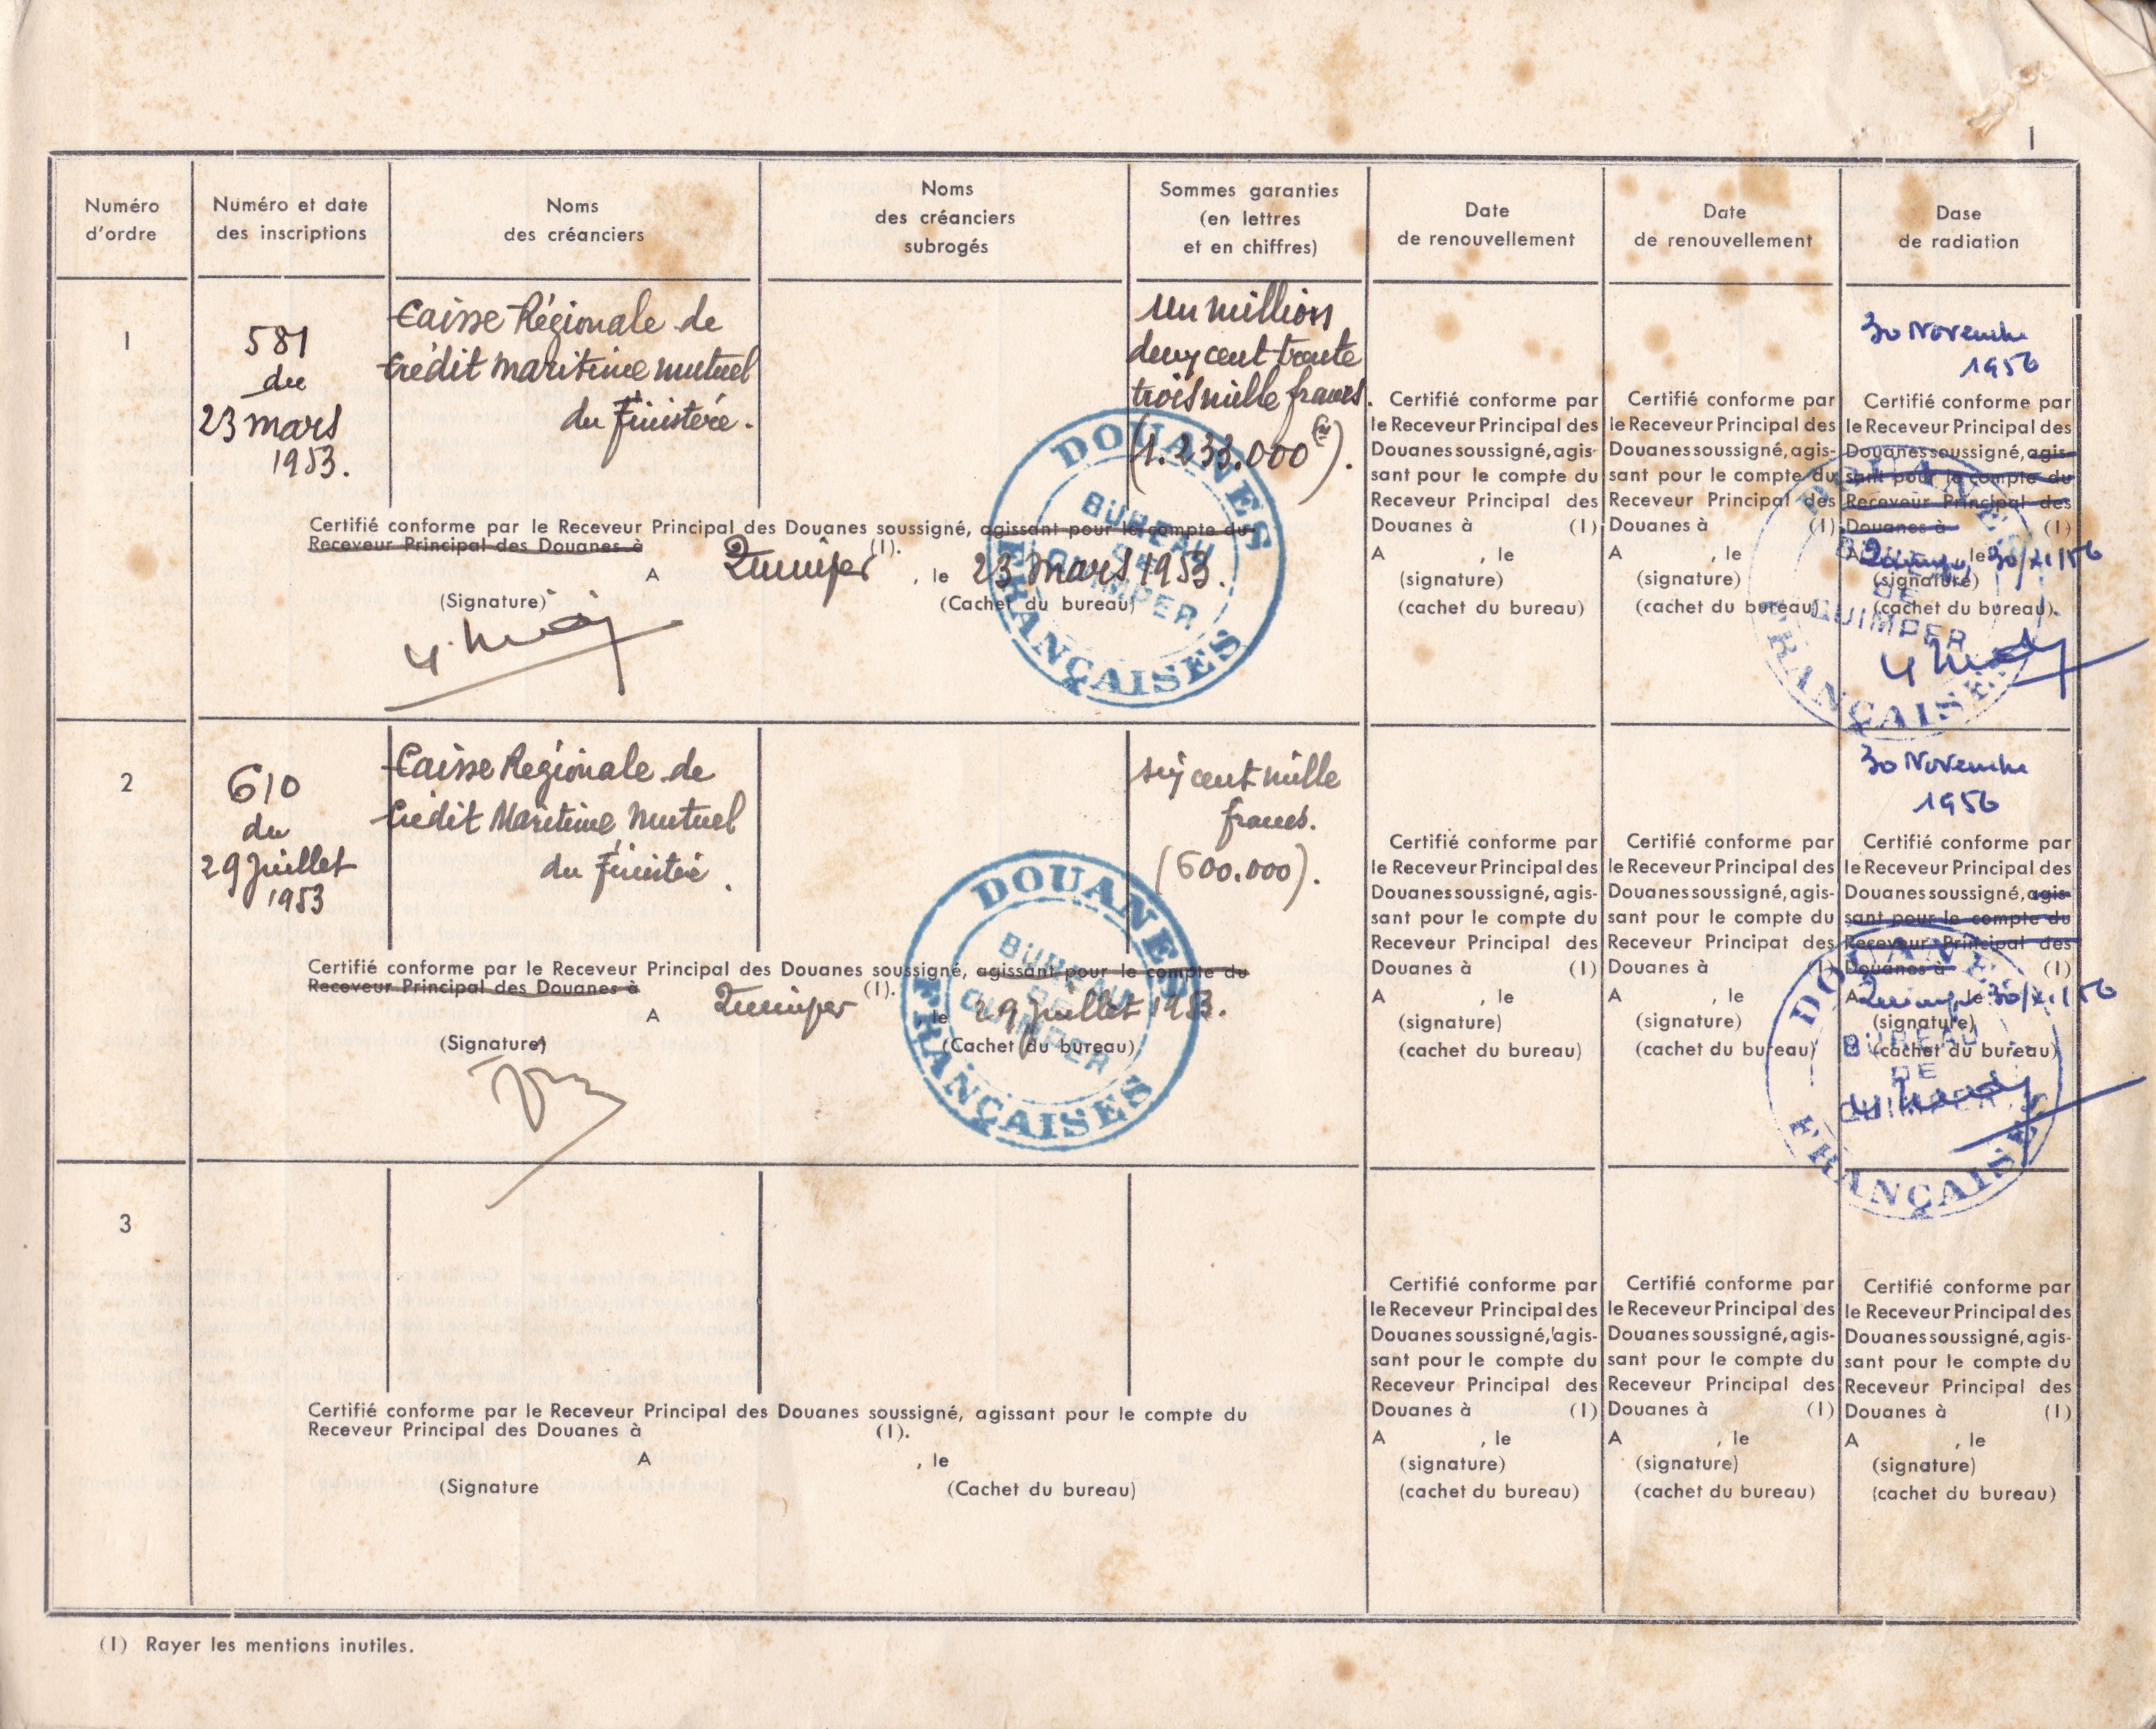 1
Numéro
d'ordre
Numéro et date
des inscriptions
Noms
des créanciers
Noms
des créanciers
subrogés
Sommes garanties
(en lettres
et en chiffres)
Date
de renouvellement
Date
de renouvellement
Dase
de radiation
1
581
du
23 mars
1953.
Caisse Régionale de
Crédit maritime mutuel
du Finistère.
un million
deux cent trente
trois mille francs.
(1.233.000 frs).
Certifié conforme par le Receveur Principal des Douanes soussigné, agissant pour le compte du
Receveur Principal des Douanes à (1).
A Quimper , le 23 mars 1953.
(Signature)
(Cachet du bureau)
DOUANES FRANÇAISES
BUREAU
DE
QUIMPER
Certifié conforme par
le Receveur Principal des
Douanes soussigné, agis-
sant pour le compte du
Receveur Principal des
Douanes à (1)
A , le
(signature)
(cachet du bureau)
Certifié conforme par
le Receveur Principal des
Douanes soussigné, agis-
sant pour le compte du
Receveur Principal des
Douanes à (1)
A , le
(signature)
(cachet du bureau)
30 Novembre
1956
Certifié conforme par
le Receveur Principal des
Douanes soussigné, agis-
sant pour le compte du
Receveur Principal des
Douanes à (1)
A Quimper, le 30/XI/56
(signature)
(cachet du bureau)
DOUANES FRANÇAISES
BUREAU
DE
QUIMPER
2
610
du
29 Juillet
1953
Caisse Régionale de
Crédit Maritime Mutuel
du Finistère.
six cent mille
francs.
(600.000).
Certifié conforme par le Receveur Principal des Douanes soussigné, agissant pour le compte du
Receveur Principal des Douanes à (1).
A Quimper le 29 Juillet 1953.
(Signature)
(Cachet du bureau)
DOUANES FRANÇAISES
BUREAU
DE
QUIMPER
Certifié conforme par
le Receveur Principal des
Douanes soussigné, agis-
sant pour le compte du
Receveur Principal des
Douanes à (1)
A , le
(signature)
(cachet du bureau)
Certifié conforme par
le Receveur Principal des
Douanes soussigné, agis-
sant pour le compte du
Receveur Principat des
Douanes à (1)
A , le
(signature)
(cachet du bureau)
30 Novembre
1956
Certifié conforme par
le Receveur Principal des
Douanes soussigné, agis-
sant pour le compte du
Receveur Principal des
Douanes à (1)
A Quimper, le 30/XI/56
(signature)
(cachet du bureau)
DOUANES FRANÇAISES
BUREAU
DE
QUIMPER
3
Certifié conforme par le Receveur Principal des Douanes soussigné, agissant pour le compte du
Receveur Principal des Douanes à (1).
A , le
(Signature
(Cachet du bureau)
Certifié conforme par
le Receveur Principal des
Douanes soussigné, agis-
sant pour le compte du
Receveur Principal des
Douanes à (1)
A , le
(signature)
(cachet du bureau)
Certifié conforme par
le Receveur Principal des
Douanes soussigné, agis-
sant pour le compte du
Receveur Principal des
Douanes à (1)
A , le
(signature)
(cachet du bureau)
Certifié conforme par
le Receveur Principal des
Douanes soussigné, agis-
sant pour le compte du
Receveur Principal des
Douanes à (1)
A , le
(signature)
(cachet du bureau)
(1) Rayer les mentions inutiles.